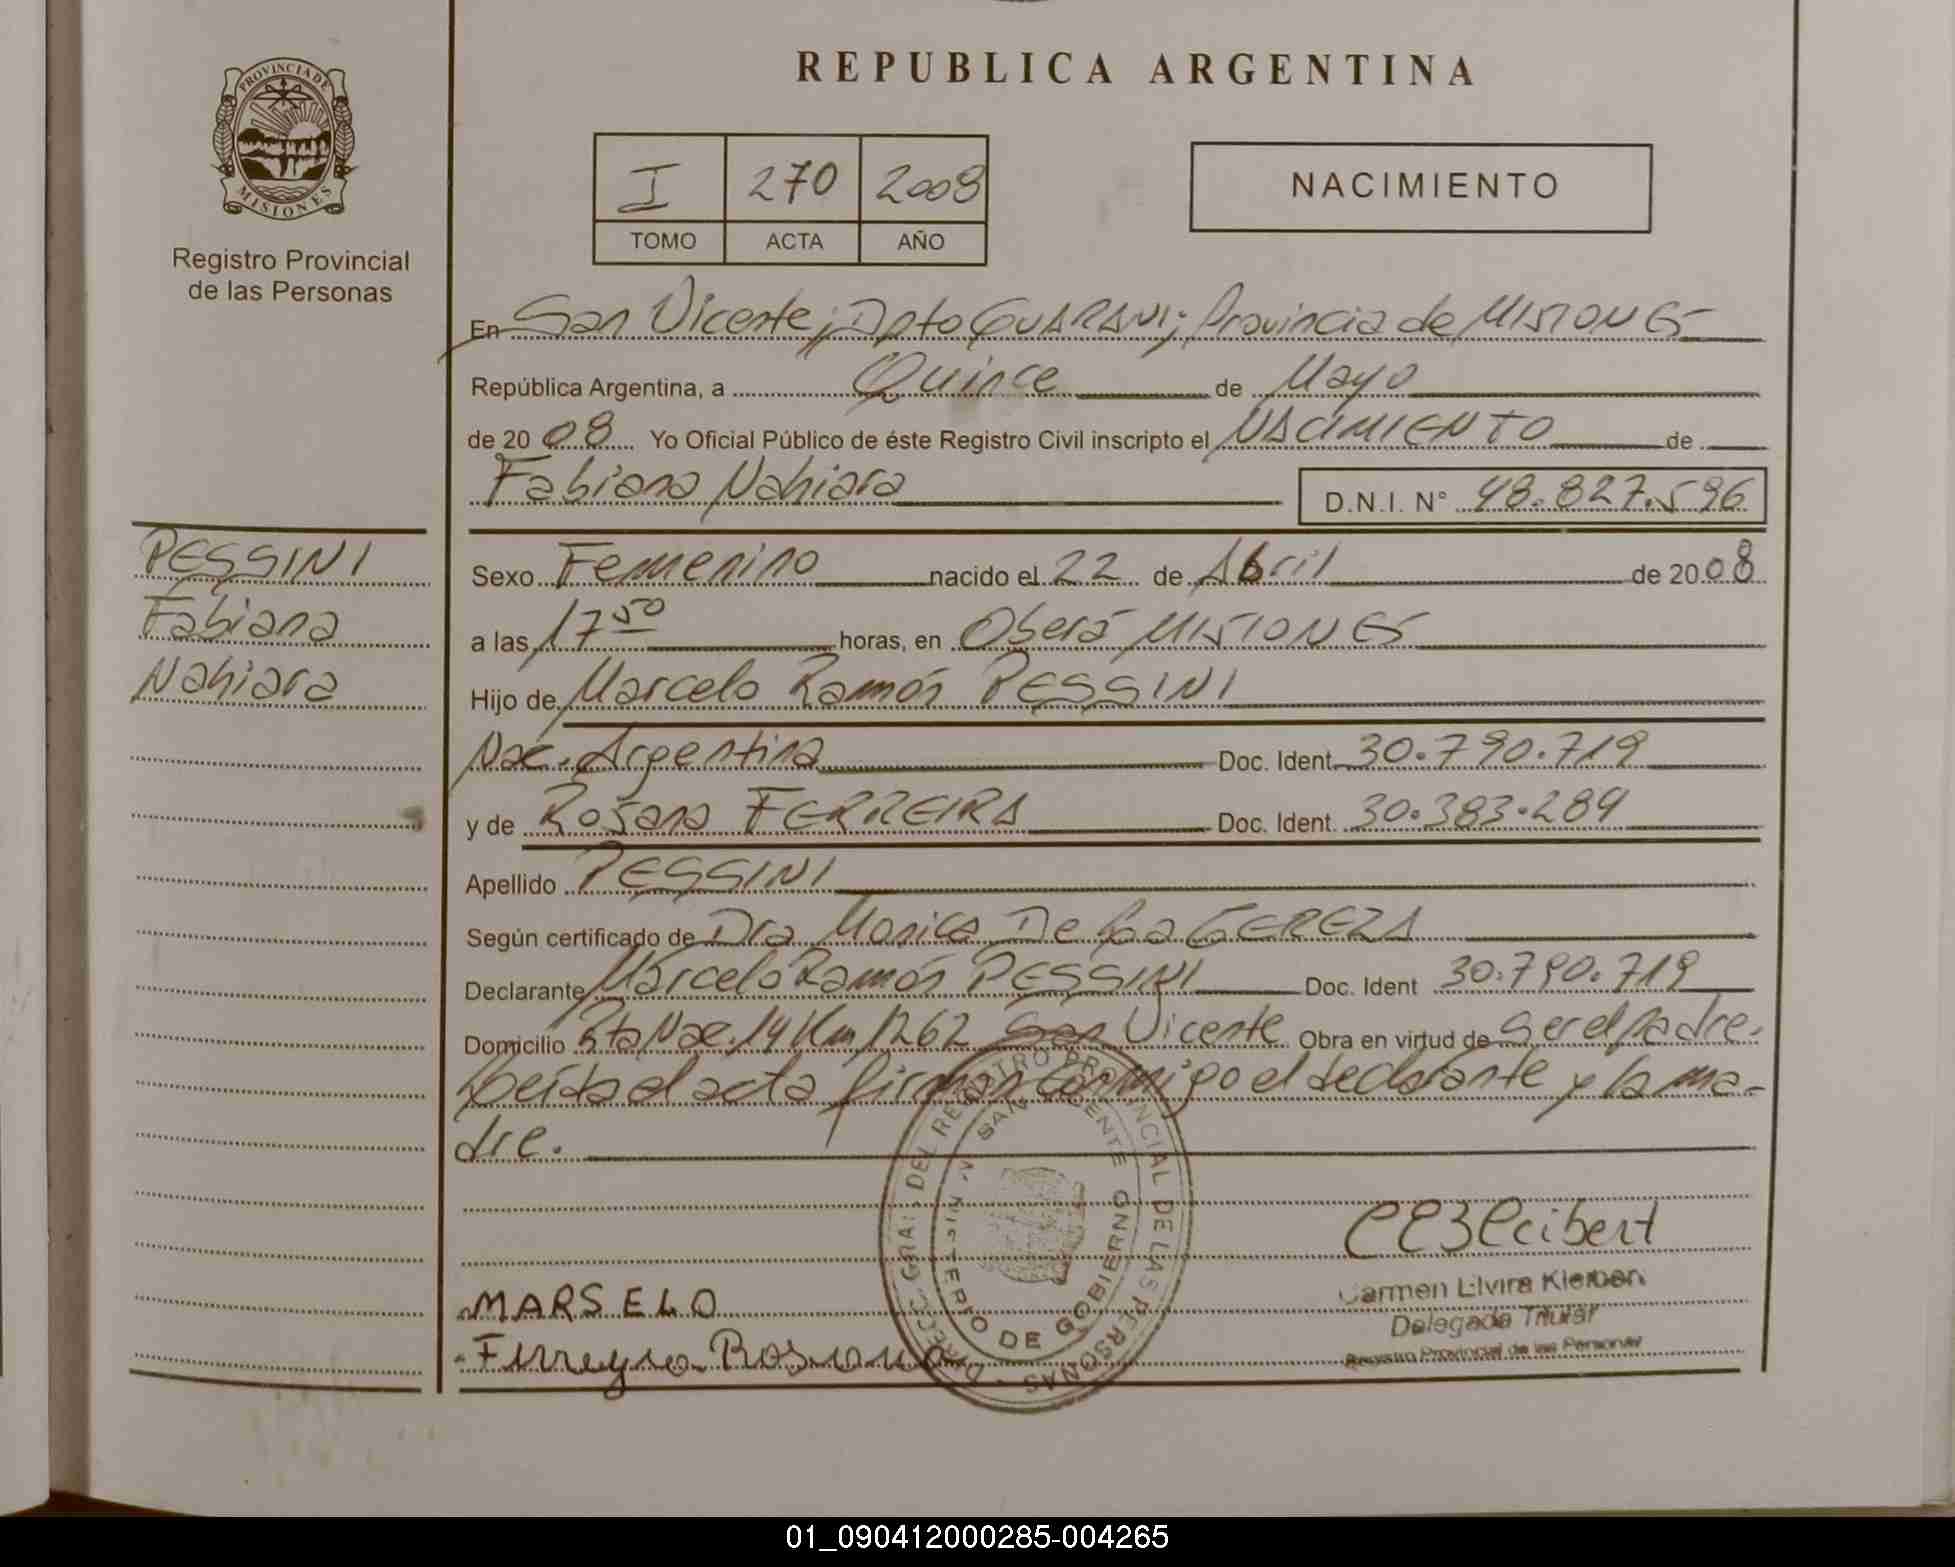 REPUBLICA ARGENTINA
PROVINCIA DE
MISIONES
Registro Provincial
de las Personas
I 270 2008
TOMO ACTA AÑO
NACIMIENTO
En San Vicente; Dpto GUARANI; Provincia de MISIONES
República Argentina, a Quince de Mayo
de 2008 Yo Oficial Público de éste Registro Civil inscripto el NACIMIENTO de
Fabiana Nahiara D.N.I. N° 48.827.596
PESSINI
Fabiana
Nahiara
Sexo Femenino nacido el 22 de Abril de 2008
a las 17 50 horas, en Oberá MISIONES
Hijo de Marcelo Ramón PESSINI
Nac. Argentina Doc. Ident. 30.790.719
y de Rosana FERREIRA Doc. Ident. 30.383.289
Apellido PESSINI
Según certificado de Dra Monica De La CEREZA
Declarante Marcelo Ramón PESSINI Doc. Ident 30.790.719
Domicilio Rta Nac. 14 Km 1262 San Vicente Obra en virtud de ser el padre.
Leída el acta firman conmigo el declarante y la ma-
dre.
DIRECC. GRAL. DEL REGISTRO PROVINCIAL DE LAS PERSONAS
SAN VICENTE
MINISTERIO DE GOBIERNO
Carmen Elvira
Delegada Titular
Registro Provincial de las Personas
MARSELO
Ferreyra Rosana
01_090412000285-004265